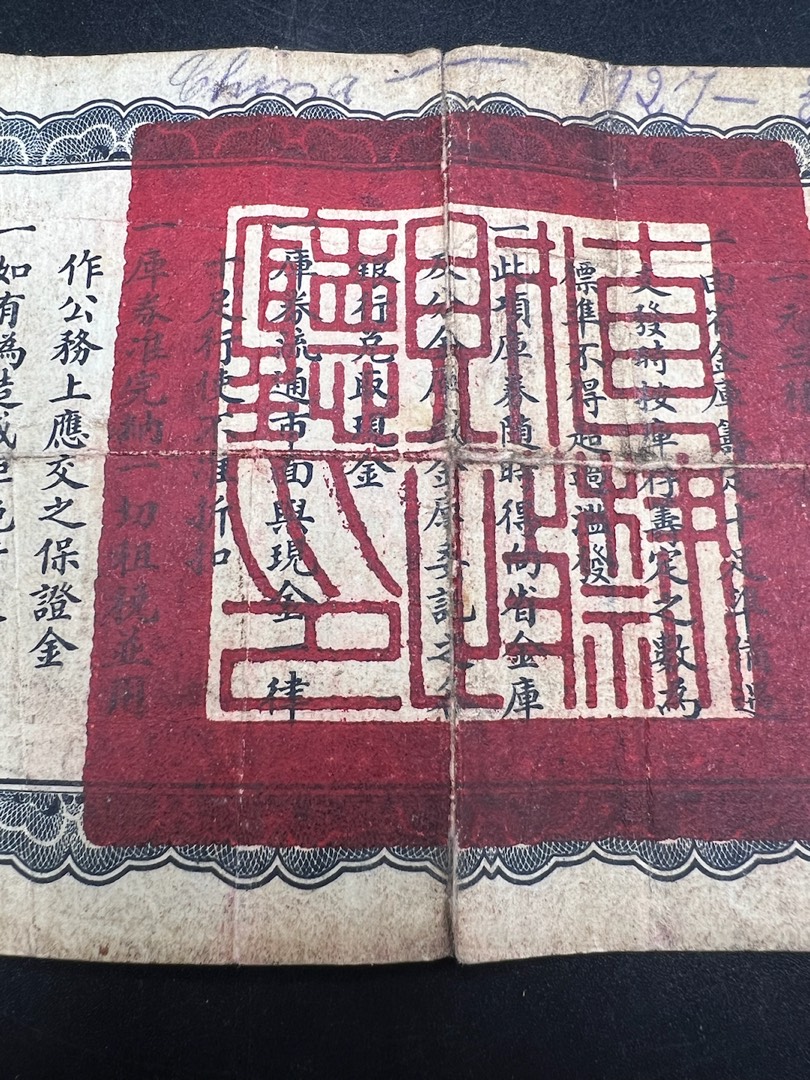 China — 1927 —
一由省金庫籌足十足準備遇
支發時按庫存籌定之數為
標準不得超過濫發
一此項庫券隨時得向省金庫
及分金庫或金庫委託之各
銀行兌取現金
一庫券流通市面與現金一律
十足行使不准折扣
一庫券准完納一切租稅並用
作公務上應交之保證金
一如有偽造或拒絕